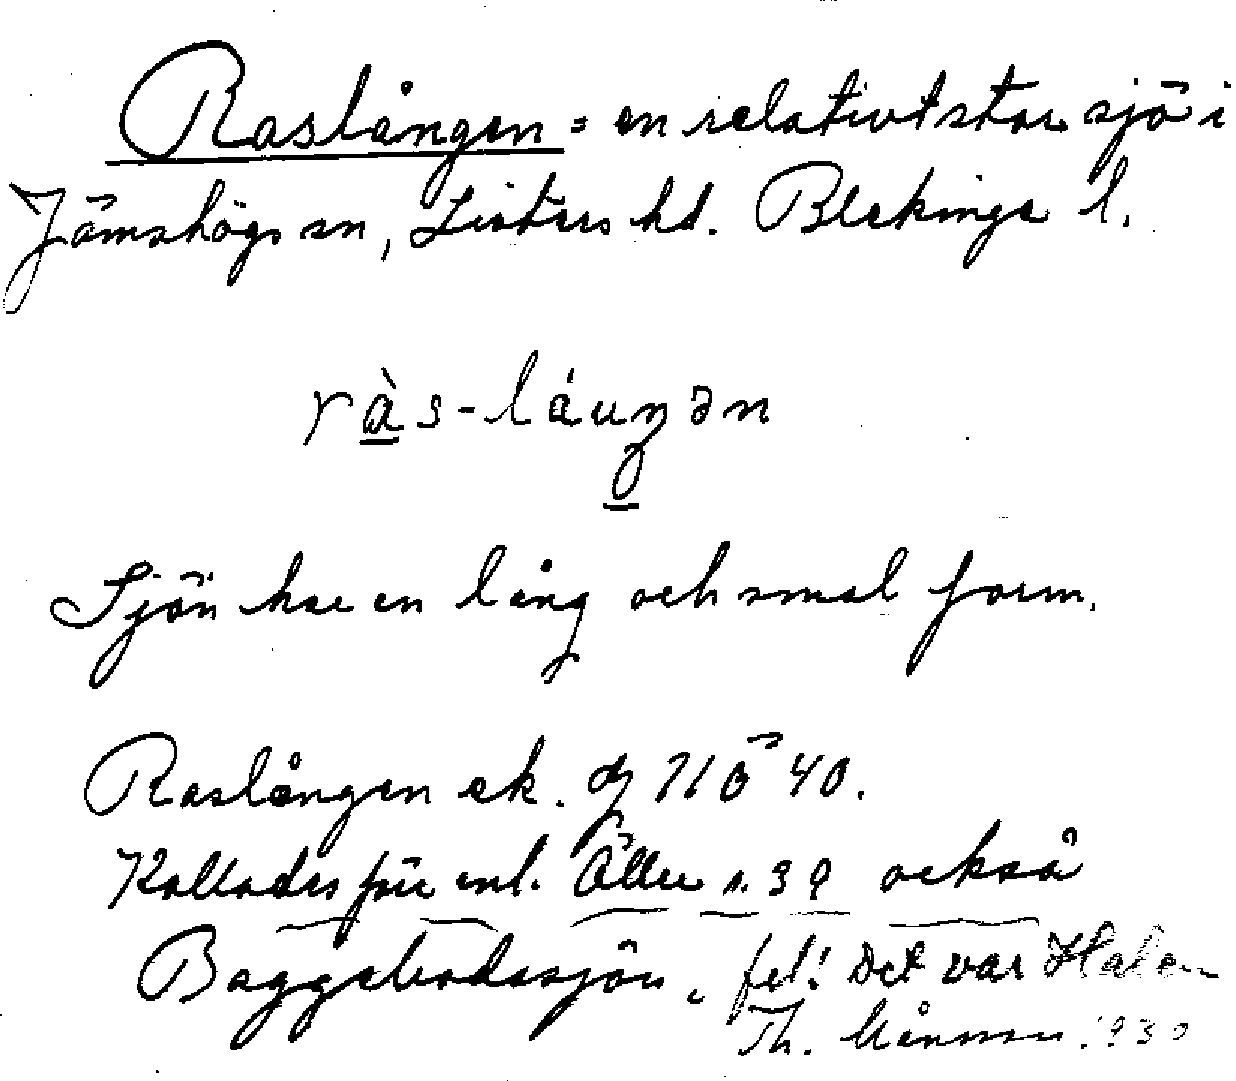 Raslången = en relativt stor sjö i
Jämshögs sn, Listers hd. Blekinge l.
ràs-láuŋən
Sjön har en lång och smal form.
Raslången ek. bl 71ö 40.
Kallades förr enl. Öller s. 39 också
Baggebodasjön. fel! Det var Halen
Th. Månsson. 1930